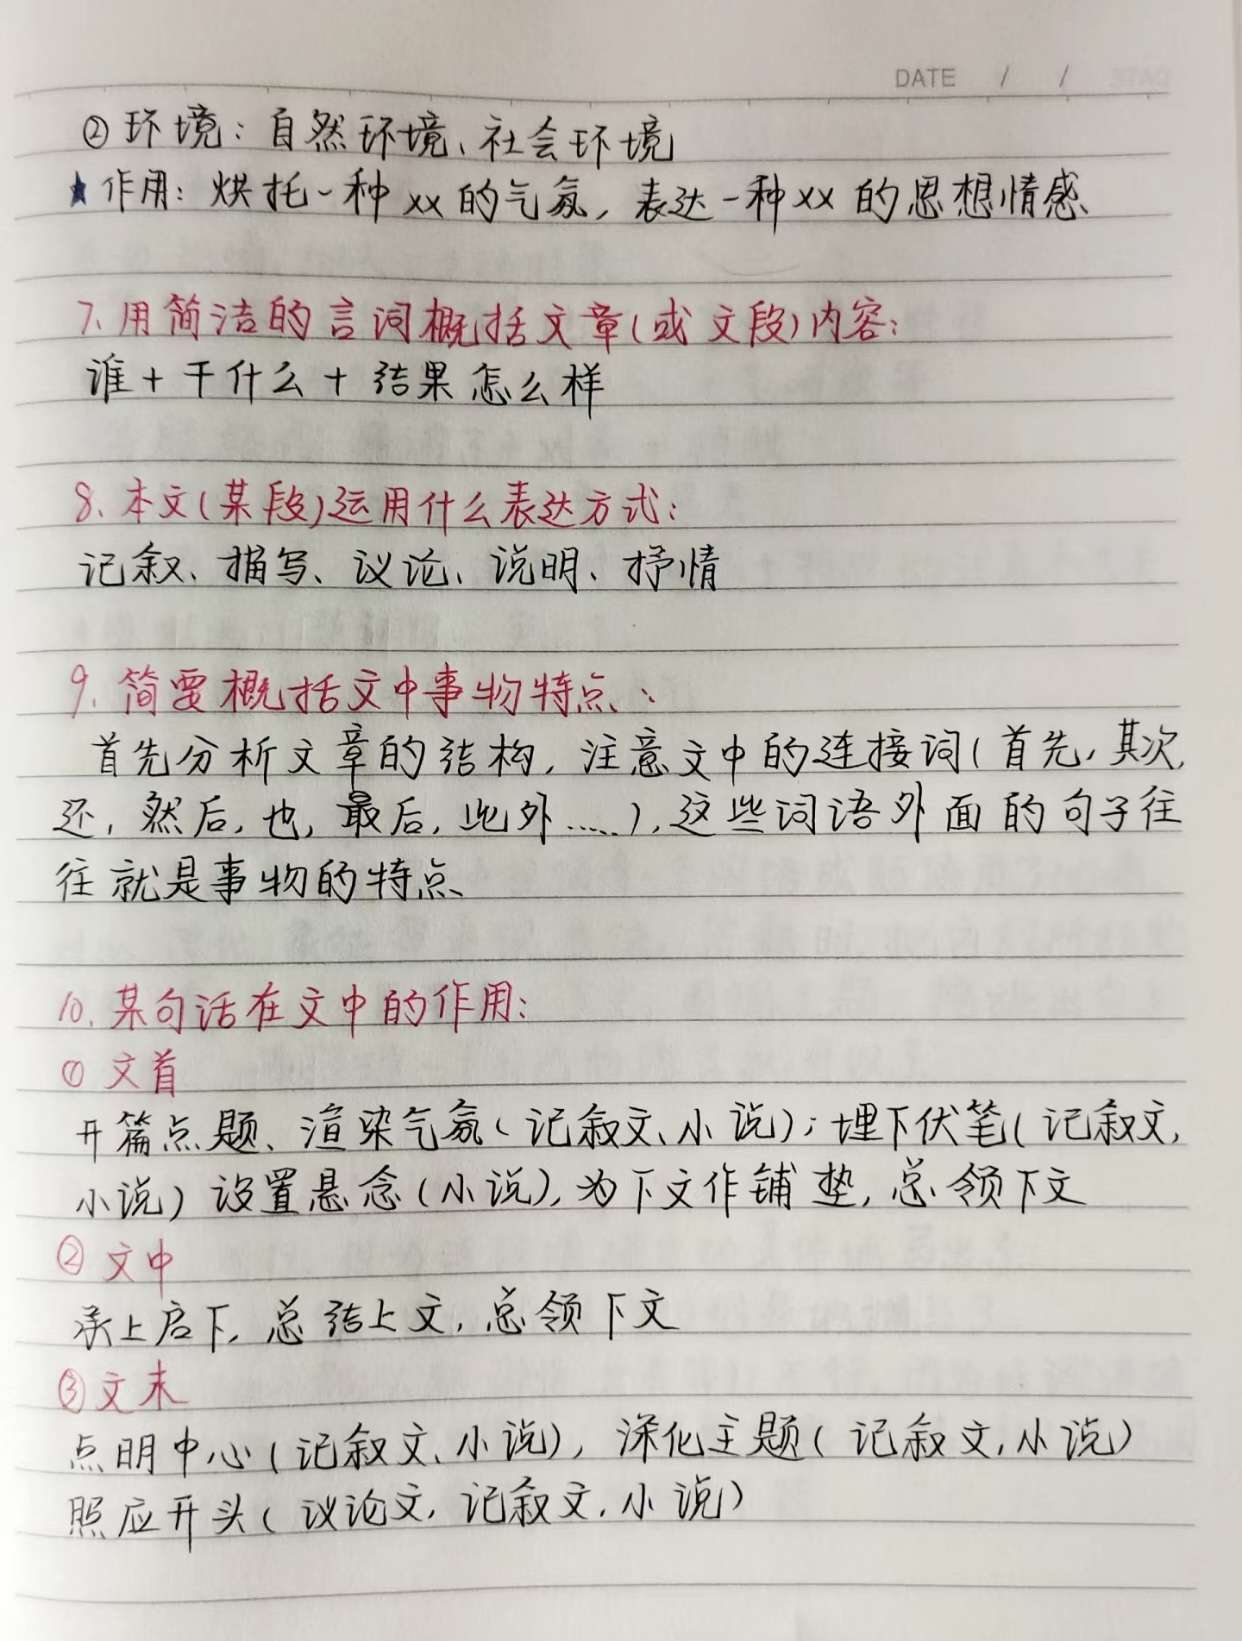 DATE / /
②环境：自然环境、社会环境
★作用：烘托一种xx的气氛，表达一种xx的思想情感、
7、用简洁的言词概括文章（或文段）内容：
谁＋干什么＋结果怎么样
8、本文（某段）运用什么表达方式：
记叙、描写、议论、说明、抒情
9、简要概括文中事物特点、
首先分析文章的结构，注意文中的连接词（首先，其次，
还，然后，也，最后，此外……），这些词语外面的句子往
往就是事物的特点、
10、某句话在文中的作用：
①文首
开篇点题、渲染气氛（记叙文、小说）；埋下伏笔（记叙文，
小说）设置悬念（小说），为下文作铺垫，总领下文
②文中
承上启下，总结上文，总领下文
③文末
点明中心（记叙文、小说），深化主题（记叙文，小说）
照应开头（议论文，记叙文，小说）